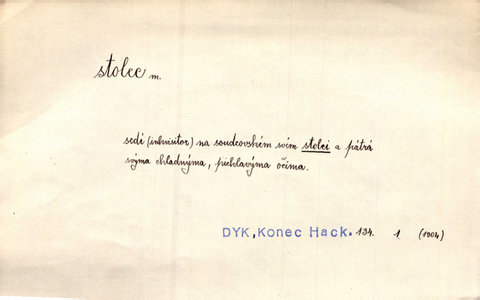 stolec m.
sedí (inkvisitor) na soudcovském svém stolci a pátrá
svýma chladnýma, pichlavýma očima.
DYK, Konec Hack. 134. 1 (1904)